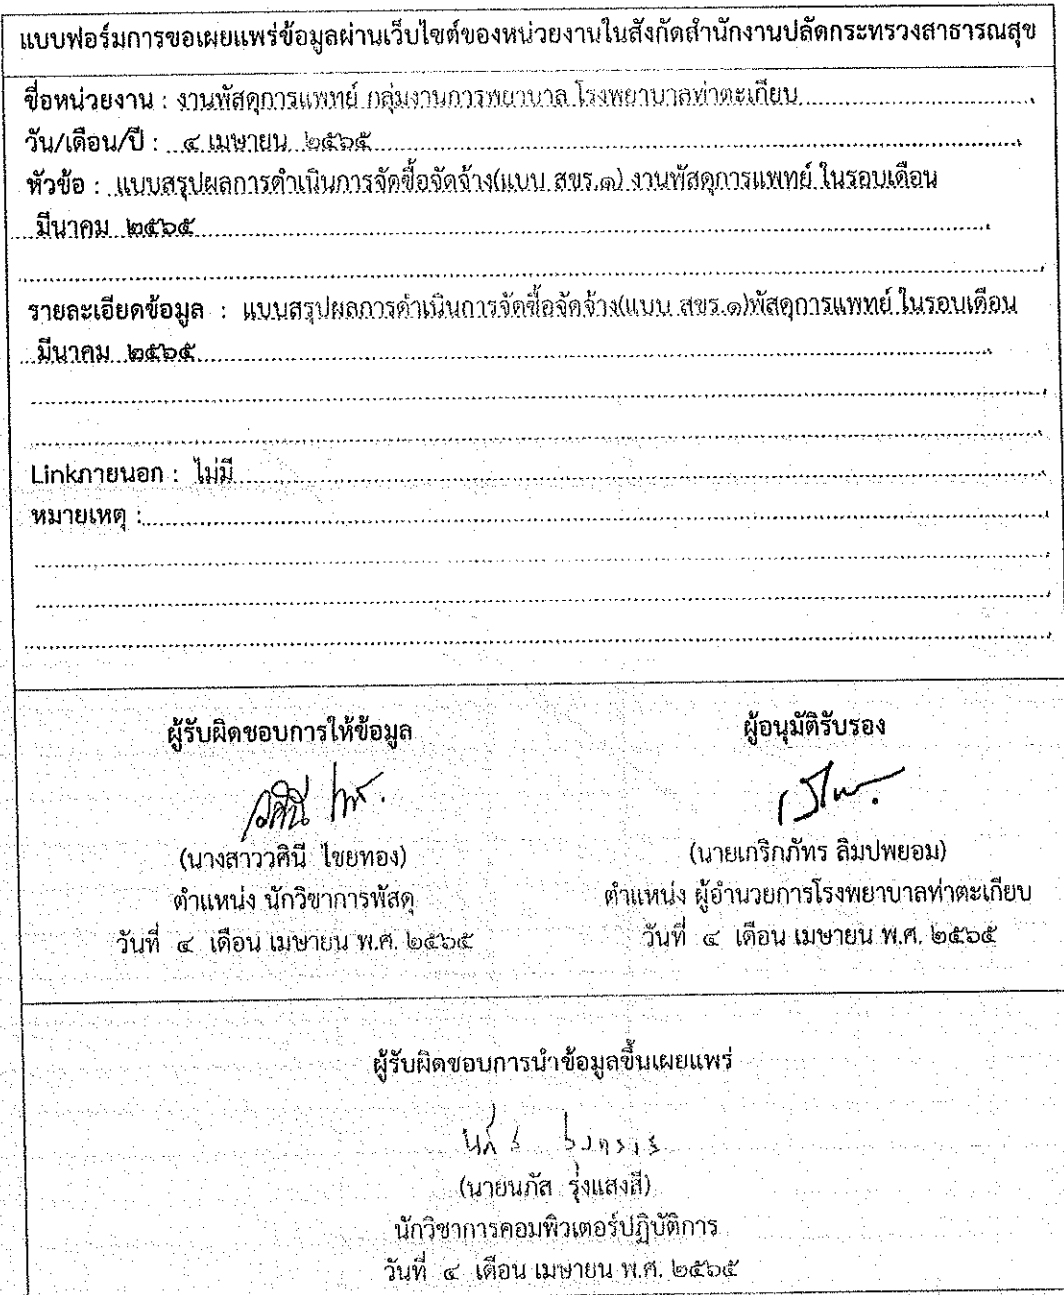 แบบฟอร์มการขอเผยแพร่ข้อมูลผ่านเว็บไซต์ของหน่วยงานในสังกัดสำนักงานปลัดกระทรวงสาธารณสุข
ชื่อหน่วยงาน : งานพัสดุการแพทย์ กลุ่มงานการพยาบาล โรงพยาบาลท่าตะเกียบ
วัน/เดือน/ปี : ๔ เมษายน ๒๕๖๕
หัวข้อ : แบบสรุปผลการดำเนินการจัดซื้อจัดจ้าง(แบบ สขร.๑) งานพัสดุการแพทย์ ในรอบเดือน
มีนาคม ๒๕๖๕
รายละเอียดข้อมูล : แบบสรุปผลการดำเนินการจัดซื้อจัดจ้าง(แบบ สขร.๑)พัสดุการแพทย์ ในรอบเดือน
มีนาคม ๒๕๖๕
Linkภายนอก : ไม่มี
หมายเหตุ :
ผู้รับผิดชอบการให้ข้อมูล
วศินี
(นางสาววศินี ไชยทอง)
ตำแหน่ง นักวิชาการพัสดุ
วันที่ ๔ เดือน เมษายน พ.ศ. ๒๕๖๕
ผู้อนุมัติรับรอง
(นายเกริกภัทร ลิมปพยอม)
ตำแหน่ง ผู้อำนวยการโรงพยาบาลท่าตะเกียบ
วันที่ ๔ เดือน เมษายน พ.ศ. ๒๕๖๕
ผู้รับผิดชอบการนำข้อมูลขึ้นเผยแพร่
(นายนภัส รุ่งแสงสี)
นักวิชาการคอมพิวเตอร์ปฏิบัติการ
วันที่ ๔ เดือน เมษายน พ.ศ. ๒๕๖๕